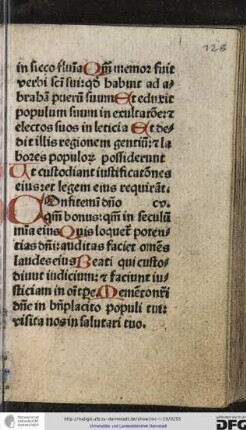 128
in sicco flumina Qm̄ memor fuit
verbi sc̄i sui: qd̓ habuit ad a-
brahā puerū suum Et eduxit
populum suum in exultatōe: ⁊
electos suos in leticia Et de-
dit illis regionem gentiū: ⁊ la
bores populoꝝ possiderunt
Ut custodiant iustificatōnes
eius: et legem eius requirāt.
COnfitemī dn̄o cv.
qm̄ bonus: qm̄ in seculū
mīa eius Quis loquet̓ poten-
tias dn̄i: auditas faciet omēs
laudes eius Beati qui custo-
diunt iudicium: ⁊ faciunt iu-
sticiam in om̄i tp̄e Memēto nr̄i
dn̄e in bn̄placito populi tui:
visita nos in salutari tuo.
Universitäts- und Landesbibliothek Darmstadt
DFG